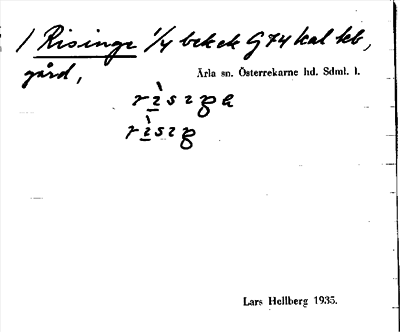 1 Risinge 1/4 bek ek G 74 kal kb,
gård,
Ärla sn. Österrekarne hd. Sdml. l.
Lars Hellberg 1935.